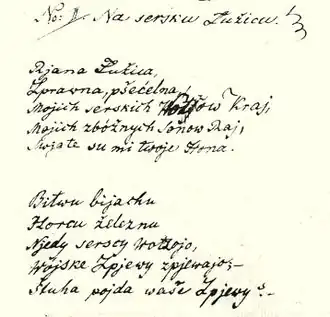 No: 1. Na sersku Łužicu.
Rjana Łužica,
Zprawna, pšećelna,
Mojich serskich Wótcow Kraj,
Mojich zbóžnych Sonow Raj,
Swjate su mi twoje Hona.
Bitwu bijachu
Horcu železnu
Njedy serscy Wótcojo,
Wójske Zpjewy zpjewajo;–
Štuha pojda waše Zpjewy?–